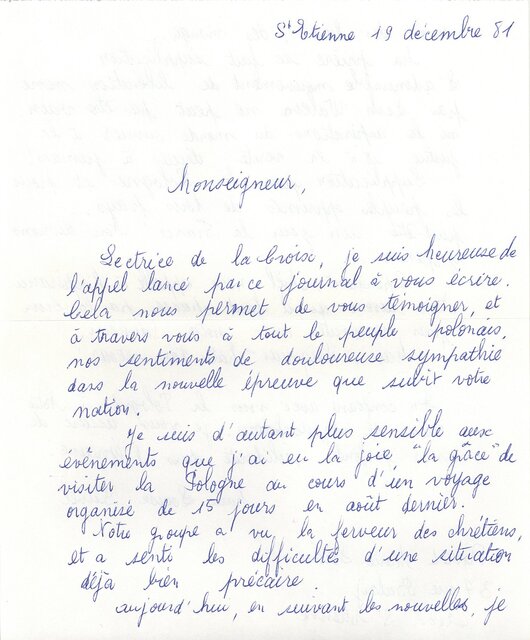 St Etienne 19 décembre 81
Monseigneur,
Lectrice de la Croix, je suis heureuse de
l'appel lancé par ce journal à vous écrire.
Cela nous permet de vous témoigner, et
à travers vous à tout le peuple polonais,
nos sentiments de douloureuse sympathie
dans la nouvelle épreuve que subit votre
nation.
Je suis d'autant plus sensible aux
événements que j'ai eu la joie "la grâce" de
visiter la Pologne au cours d'un voyage
organisé de 15 jours en août dernier.
Notre groupe a vu la ferveur des chrétiens,
et a senti les difficultés d'une situation
déjà bien précaire
aujourd'hui, en suivant les nouvelles, je